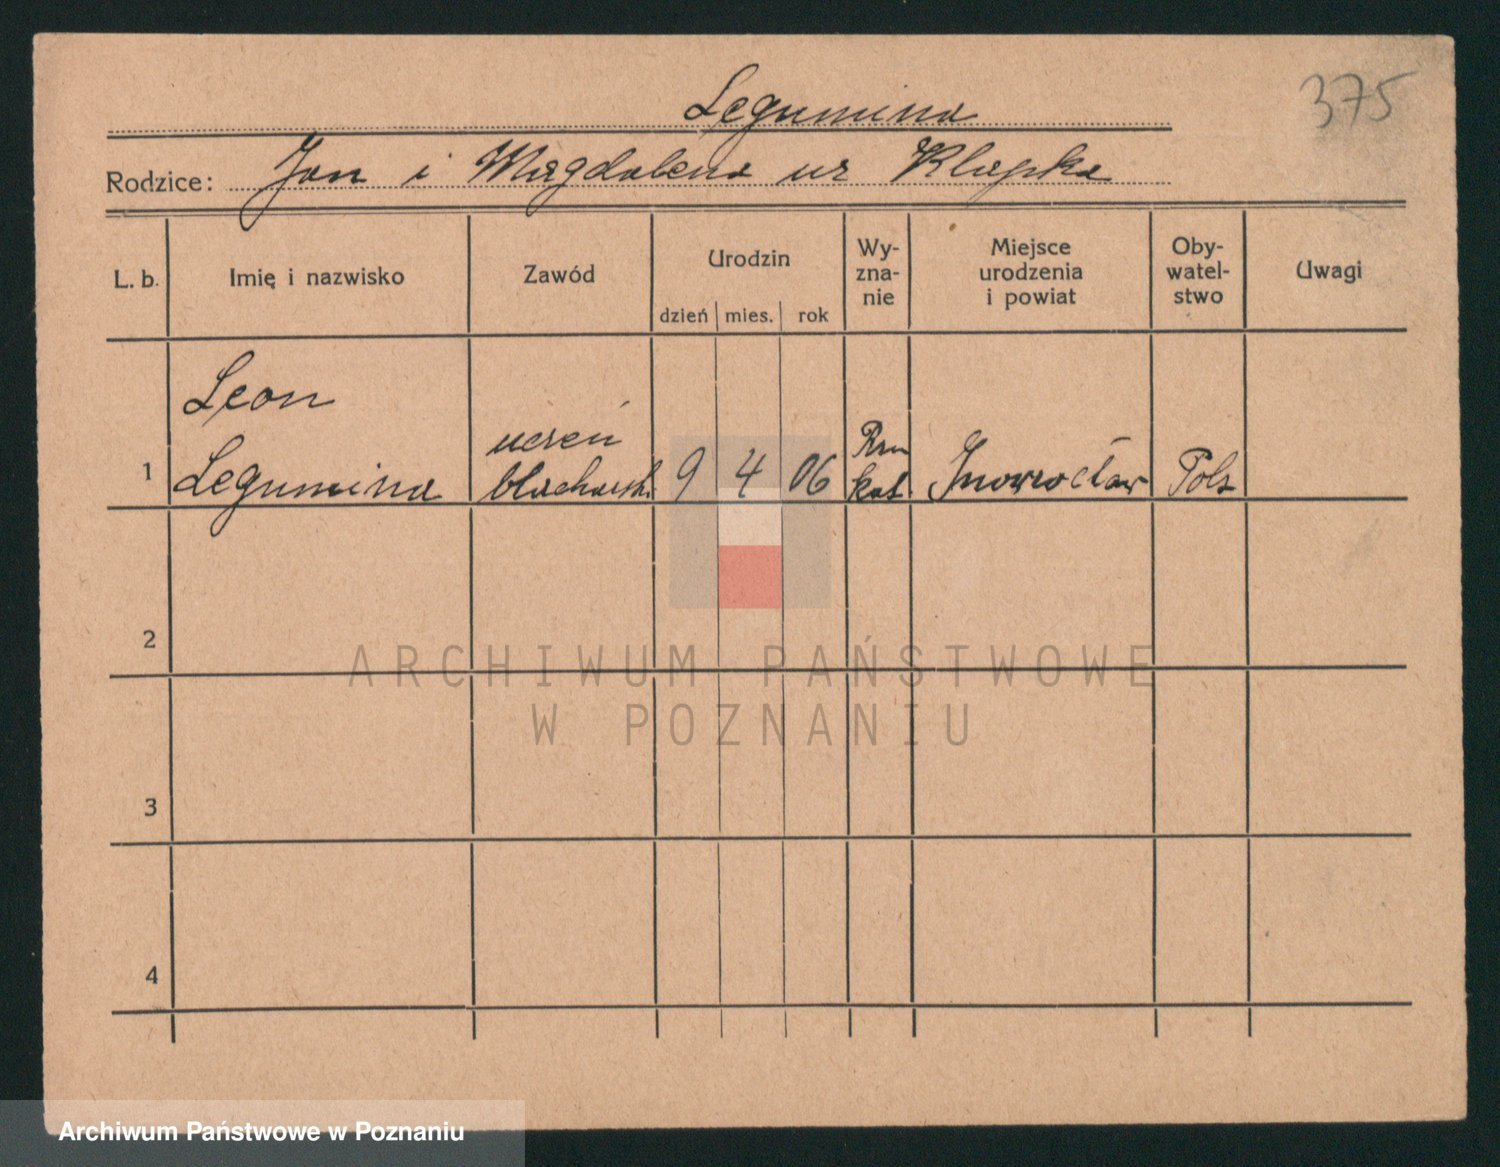 Legumina
375
Rodzice: Jan i Magdalena ur Klapka
L. b.
Imię i nazwisko
Zawód
Urodzin
dzień mies. rok
Wy-
zna-
nie
Miejsce
urodzenia
i powiat
Oby-
watel-
stwo
Uwagi
1
Leon
Legumina
uczeń
blacharsk.
9 4 06
Rzm
kat.
Inowrocław
Pols
2
3
4
ARCHIWUM PAŃSTWOWE
W POZNANIU
Archiwum Państwowe w Poznaniu